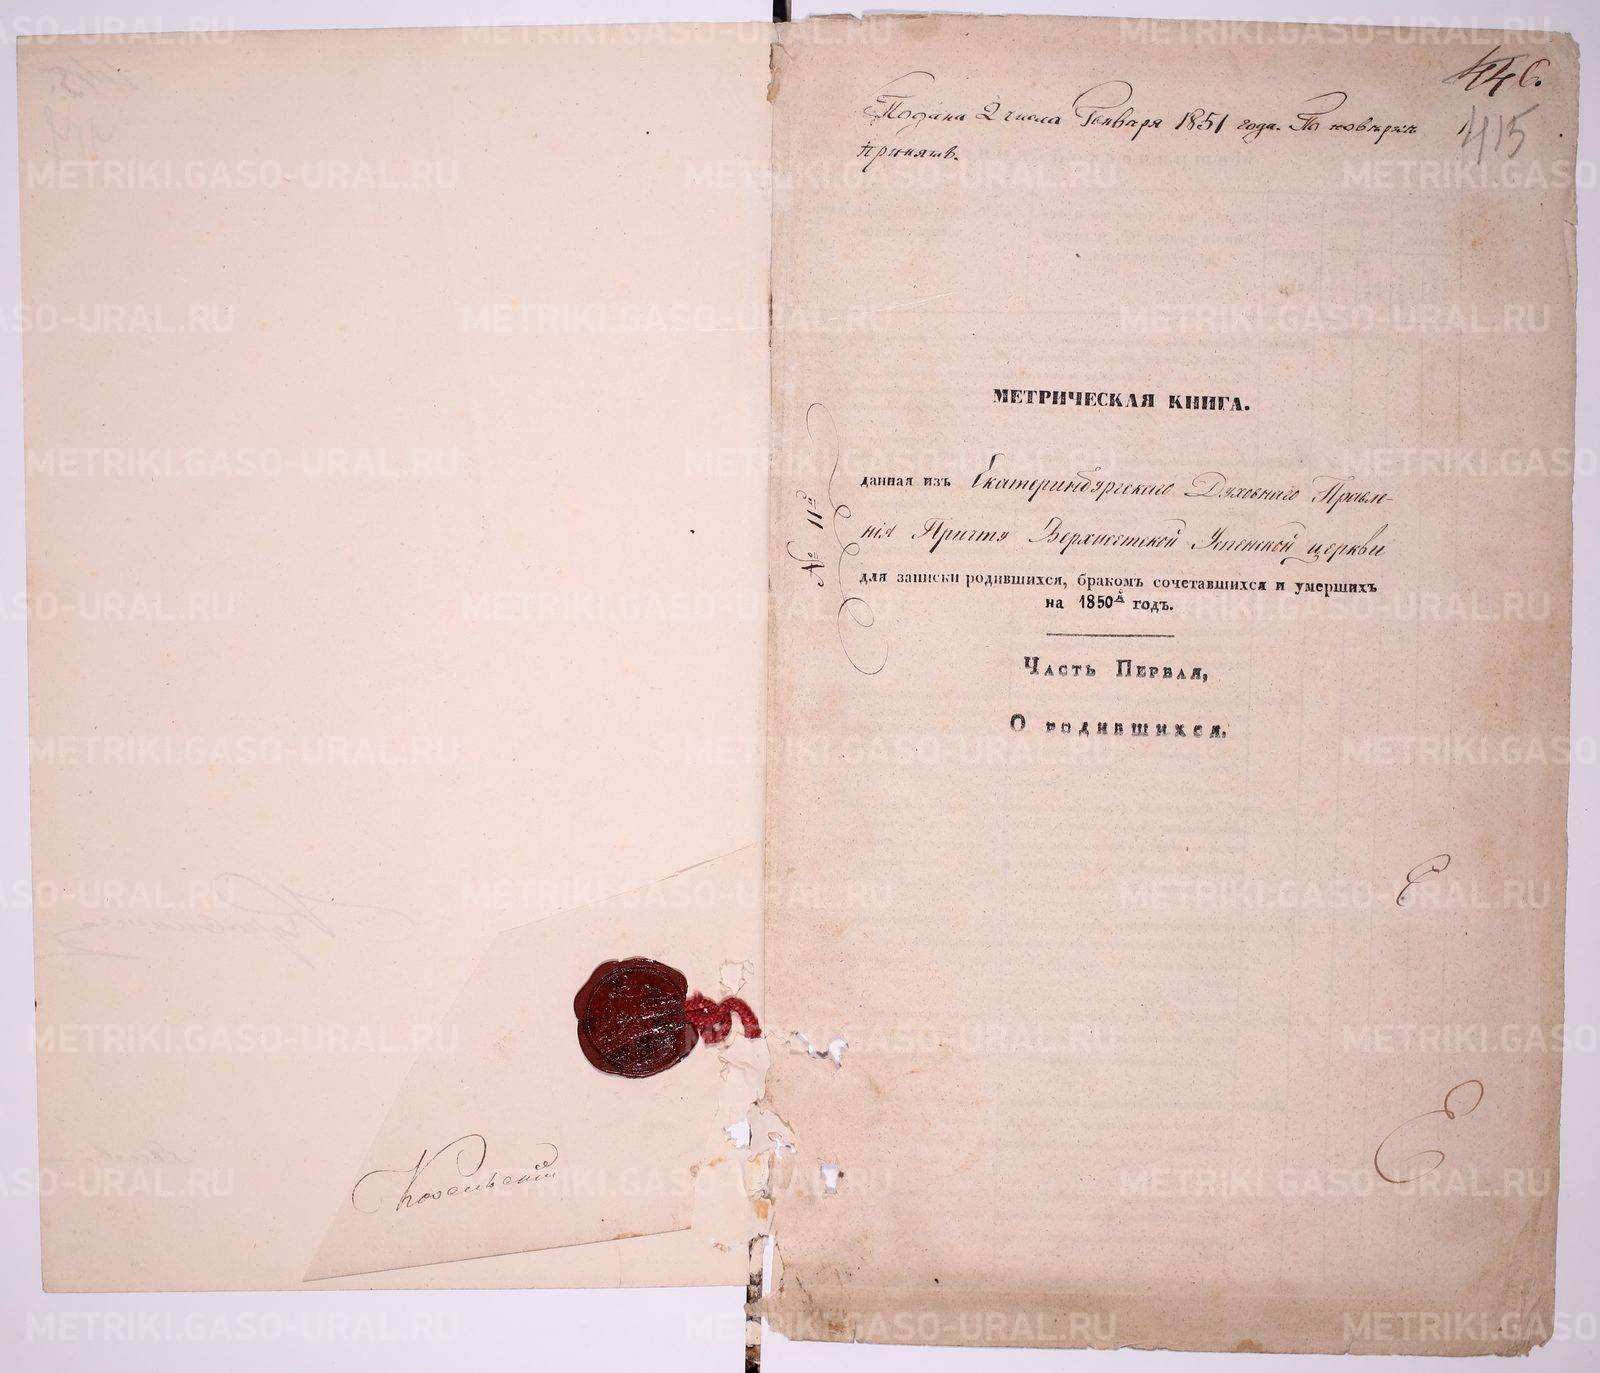 446.
415
Подана 2 числа Генваря 1851 года. По поверки
принять.
МЕТРИЧЕСКАЯ КНИГА.
№ 11й
данная изъ Екатеринбургскаго Духовнаго Правле-
нія Причту Верхисетской Успенской церкви
для записки родившихся, бракомъ сочетавшихся и умершихъ
на 1850й годъ.
Часть Первая,
О родившихся.
Козельскій
METRIKI.GASO-URAL.RU